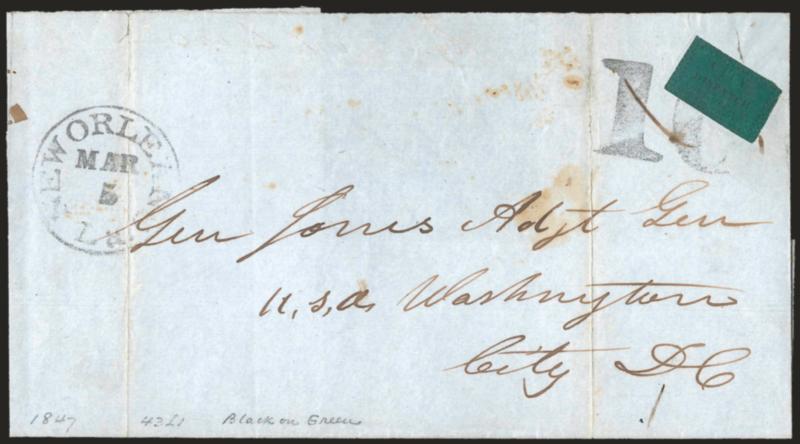 NEW ORLEANS
MAR
5
La.
10
DISPATCH
Gen Jones Adjt Gen
U.S.A. Washington
City D.C
1847 43L1 Black on Green